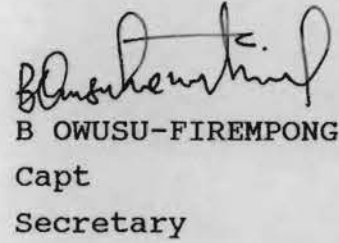 B OWUSU-FIREMPONG
Capt
Secretary